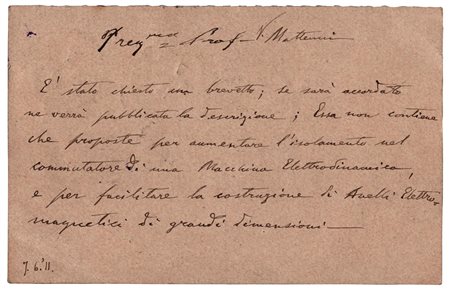 Preg.mo Prof. V. Matteucci
E' stato chiesto una brevetto; se sarà accordatto
ne verrà pubblicata la descrizione; Essa non contiene
che proposte per aumentare l'isolamento nel
commutatore di una Macchina Elettrodinamica,
e per facilitare la costruzione di Anelli Elettro-
magnetici di grandi dimensioni —
7.6.'11.